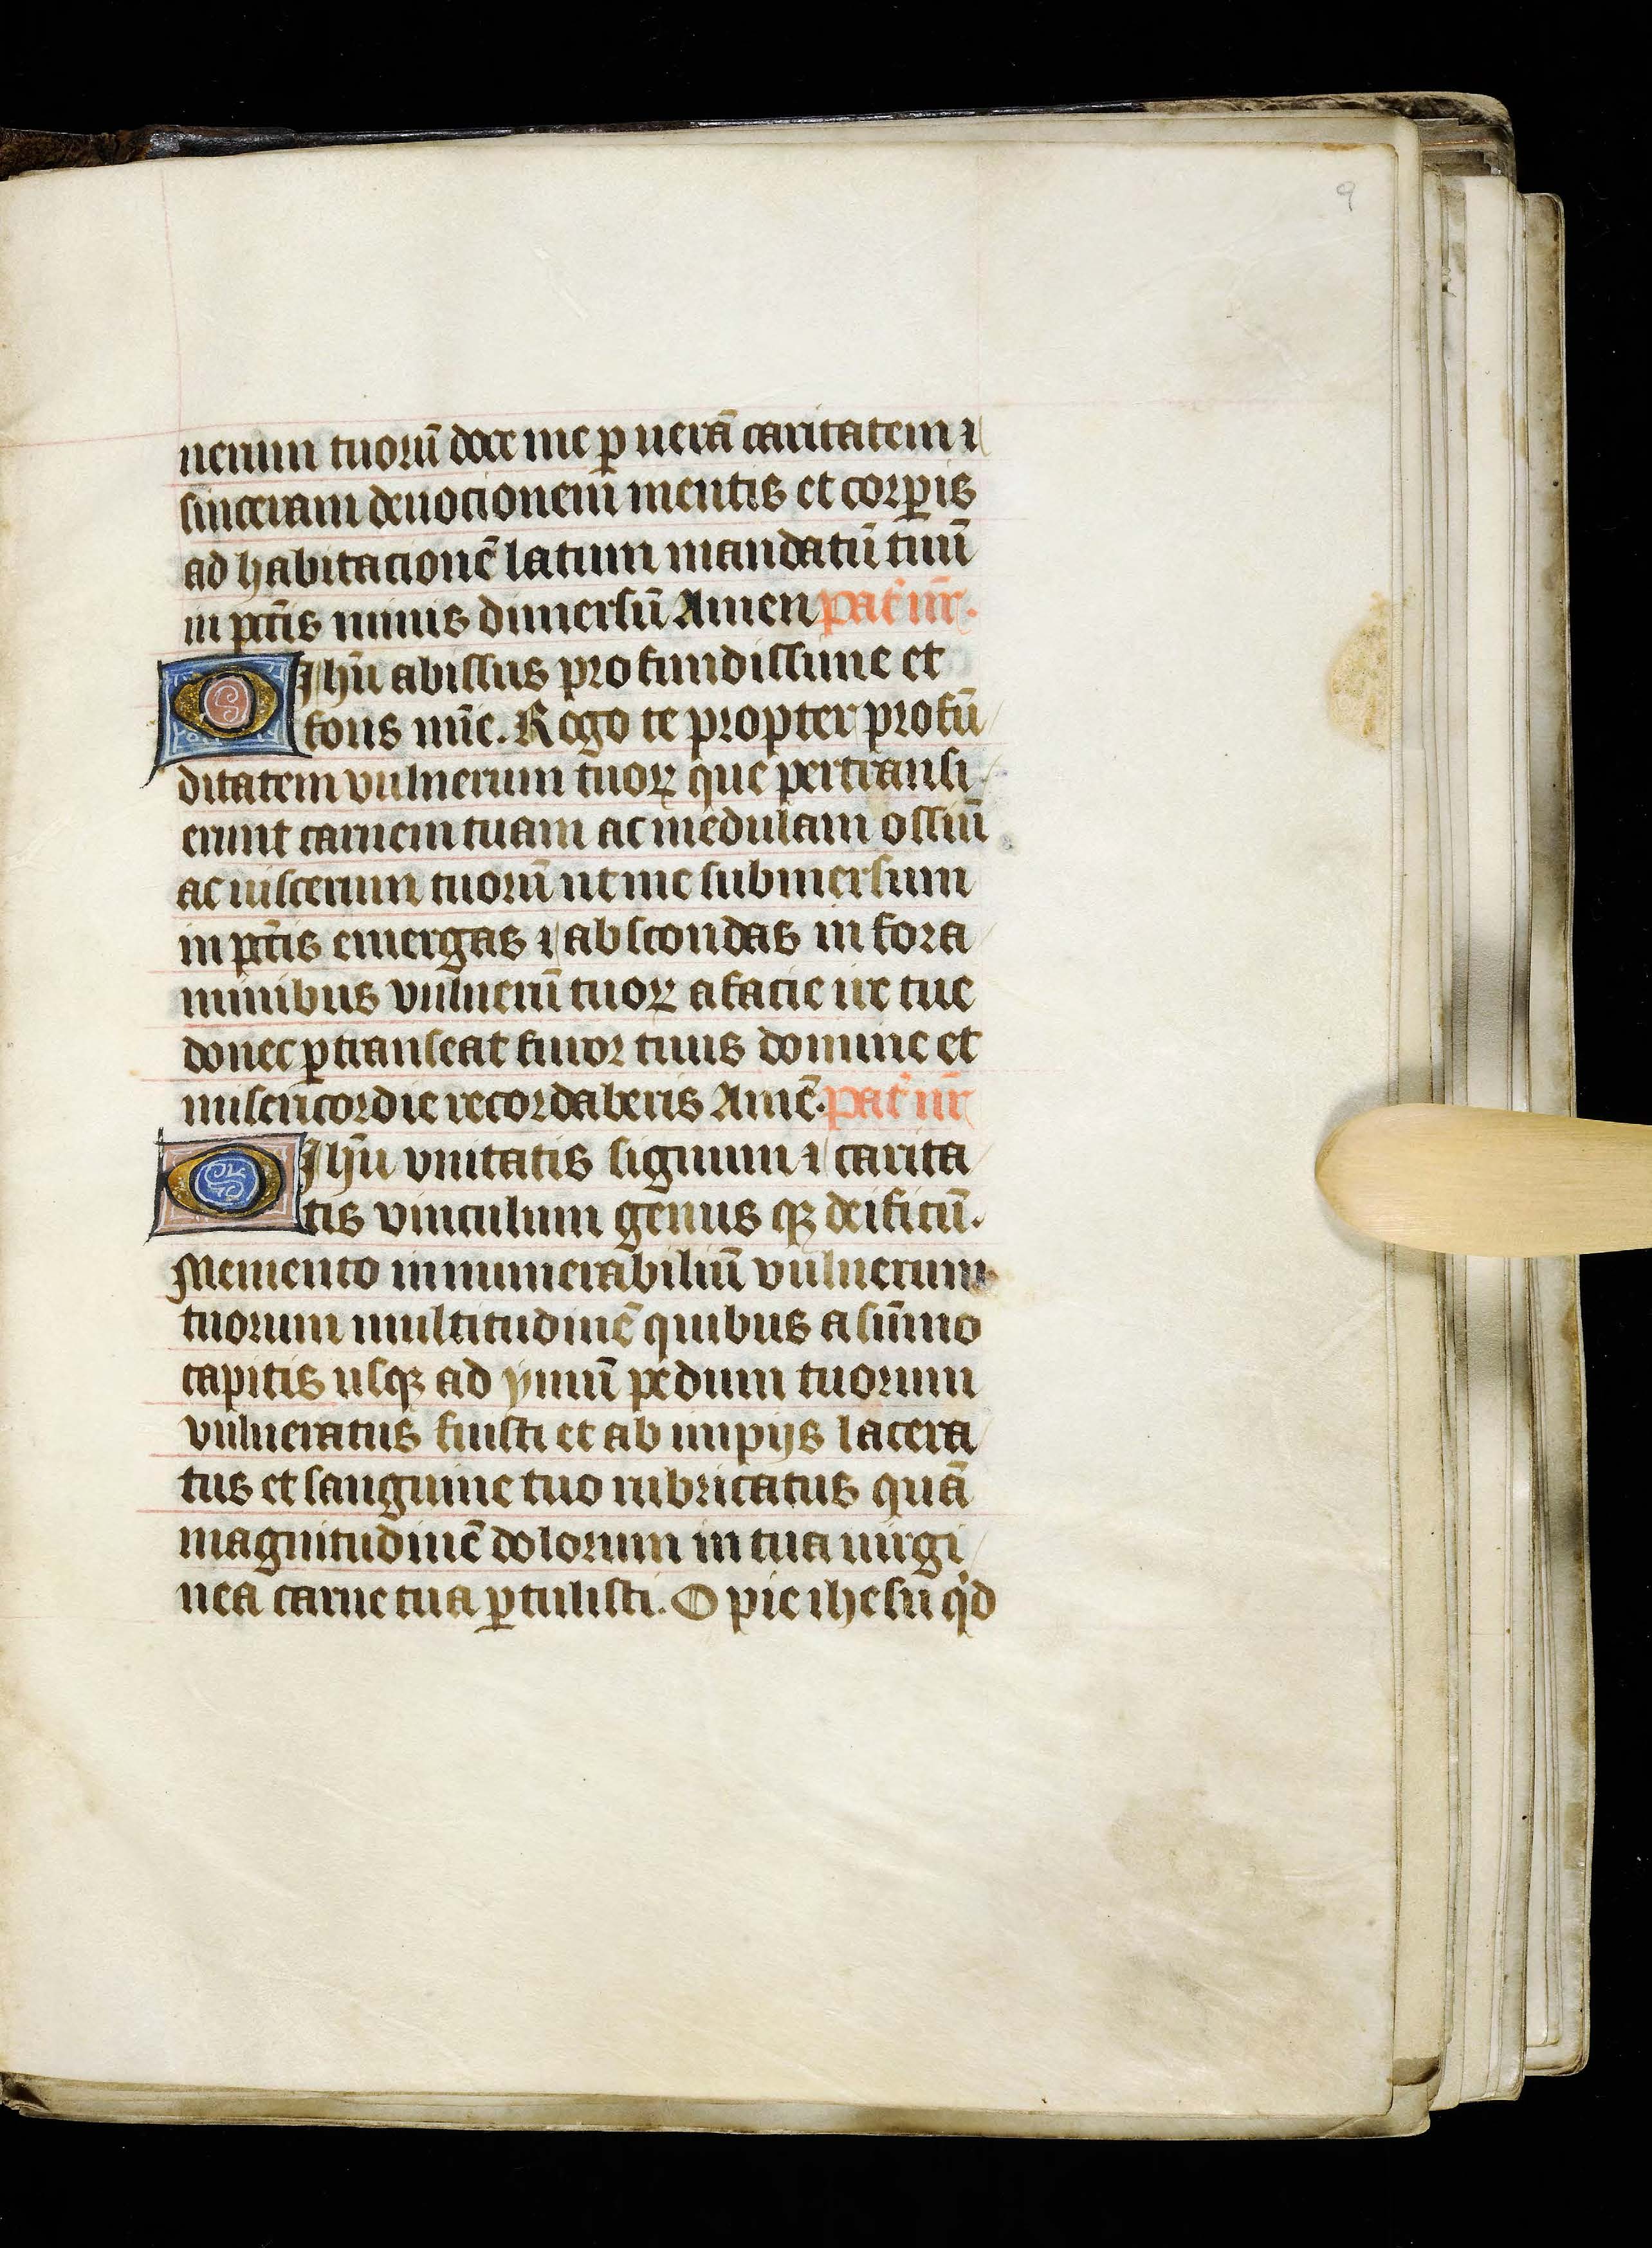 9
nerum tuorū doce me ꝑ uerā caritatem ⁊
sinceram deuocionem mentis et corꝑis
ad habitacionē latum mandatū tuū
in pctīs nimis dimersū Amen pat̄ nr̄.
O Ihū abissus profundissime et
fons mīe. Rogo te propter profū
ditatem vulnerum tuoꝝ que pertransi
erunt carnem tuam ac medulam ossiū
ac uiscerum tuorū ut me submersum
in pctīs emergas ⁊ abscondas in fora
minibus vulnerū tuoꝝ a facie ire tue
donec ꝑtranseat furor tuus domine et
misericordie recordaberis Amē. pat̄ nr̄
O Ihū vnitatis signum ⁊ carita
tis vinculum genus qꝫ deificū.
Memento innumerabiliū vulnerum
tuorum multitudinē quibus a sūmo
capitis usqꝫ ad ymū pedum tuorum
vulneratus fuisti et ab impijs lacera
tus et sanguine tuo rubricatus quā
magnitudinē dolorum in tua uirgi
nea carne tua ꝑtulisti. O pie ihesu qd